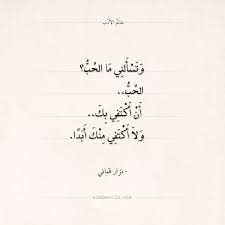 عالم الأدب
وَتَسْأَلنِي مَا الحُبُّ؟
الحُبُّ..
أَنْ أَكْتَفِي بِكَ..
وَلاَ أَكْتَفِي مِنْكَ أَبَدًا.
- نزار قباني